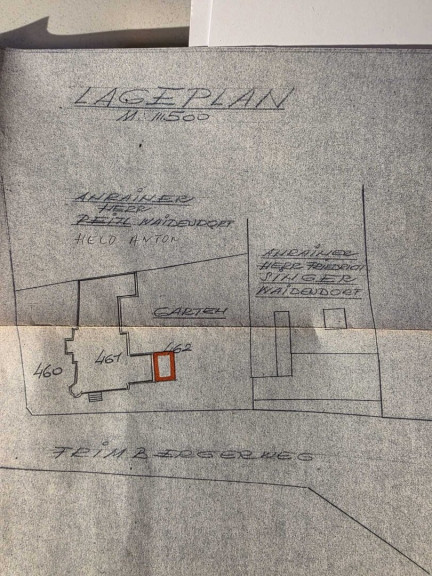 LAGEPLAN
M. 1:1500
ANRAINER
HERR
REITL WAIDENDORF
HELD ANTON
ANRAINER
HERR FRIEDRICH
SINGER
WAIDENDORF
GARTEN
462
461
460
TRIMBERGERWEG